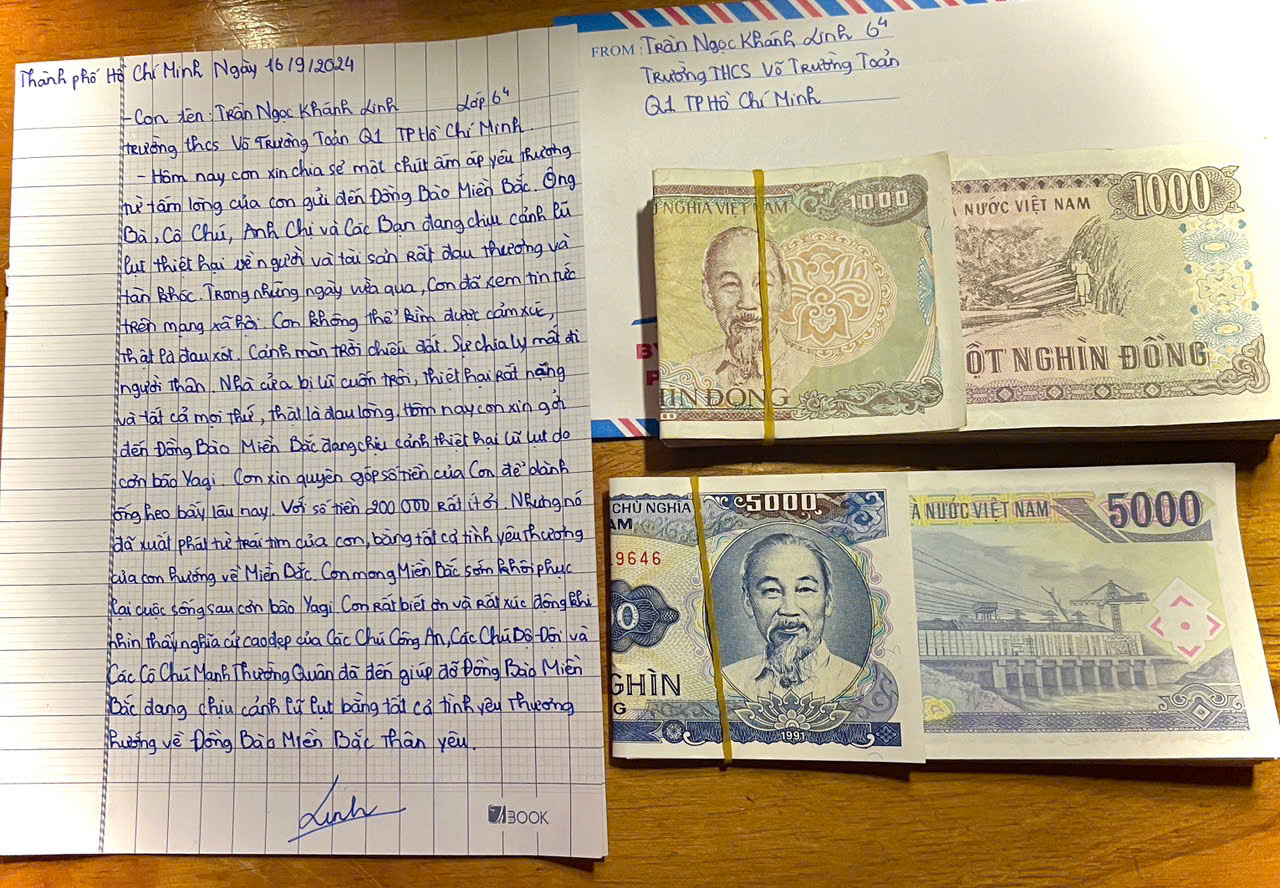 Thành phố Hồ Chí Minh Ngày 16/9/2024
- Con tên: Trần Ngọc Khánh Linh Lớp 6⁴
trường thcs Võ Trường Toản Q1 TP Hồ Chí Minh.
- Hôm nay con xin chia sẻ một chút ấm áp yêu thương
từ tấm lòng của con gửi đến Đồng Bào Miền Bắc. Ông
Bà, Cô Chú, Anh Chị và Các Bạn đang chịu cảnh lũ
lụt thiệt hại về người và tài sản Rất đau thương và
tàn khốc. Trong những ngày vừa qua, Con đã xem tin tức
trên mạng xã hội. Con không thể kìm được cảm xúc,
thật là đau xót. Cảnh màn trời chiếu đất. Sự chia ly mất đi
người thân. Nhà cửa bị lũ cuốn trôi, thiệt hại Rất nặng
và tất cả mọi thứ, thật là đau lòng. Hôm nay con xin gởi
đến Đồng Bào Miền Bắc đang chịu cảnh thiệt hại lũ lụt do
cơn bão Yagi. Con xin quyên góp số tiền của Con để dành
ống heo bấy lâu nay. Với số tiền 200 000 Rất ít ỏi. Nhưng nó
đã xuất phát từ trái tim của con, bằng tất cả tình yêu thương
của con hướng về Miền Bắc. Con mong Miền Bắc sớm khôi phục
lại cuộc sống sau cơn bão Yagi. Con Rất biết ơn và Rất xúc động khi
nhìn thấy nghĩa cử cao đẹp của Các Chú Công An, Các Chú Bộ-Đội và
Các Cô Chú Mạnh Thường Quân đã đến giúp đỡ Đồng Bào Miền
Bắc đang chịu cảnh lũ lụt bằng tất cả tình yêu thương
hướng về Đồng Bào Miền Bắc thân yêu.
Linh
BOOK
FROM: Trần Ngọc Khánh Linh 6⁴
Trường THCS Võ Trường Toản
Q1 TP Hồ Chí Minh
NGHĨA VIỆT NAM 1000
ÌN ĐỒNG
NƯỚC VIỆT NAM 1000
ỘT NGHÌN ĐỒNG
CHỦ NGHĨA 5000
AM
9646
0
GHÌN
G
1991
A NƯỚC VIỆT NAM 5000